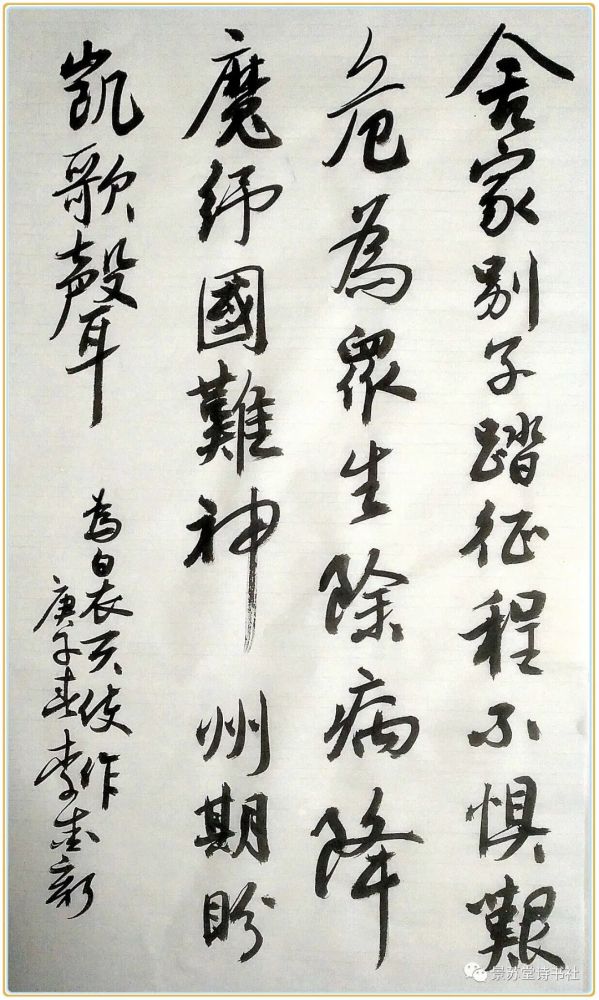 舍家别子踏征程不惧艱
危為眾生除病降
魔纾國難神州期盼
凱歌聲
為白衣天使作
庚子春李志新
景苏堂诗书社